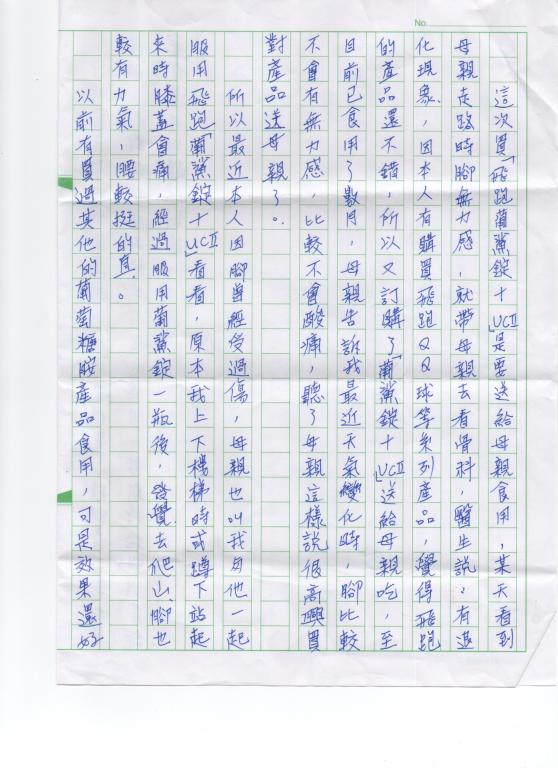 No.
這次買「飛跑葡鯊錠十UCII」是要送給母親食用，某天看到
母親走路時腳無力感，就帶母親去看骨科，醫生說：有退
化現象，因本人有購買飛跑QQ球等系列產品，覺得飛跑
的產品還不錯，所以又訂購了「葡鯊錠十UCII」送給母親吃，至
目前已食用了數月，母親告訴我最近天氣變化時，腳比較
不會有無力感，比較不會酸痛，聽了母親這樣說很高興買
對產品送母親了。
所以最近本人因腳曾經受過傷，母親也叫我與他一起
服用飛跑「葡鯊錠十UCII」看看，原本我上下樓梯時或蹲下站起
來時膝蓋會痛，經過服用葡鯊錠一瓶後，發覺去爬山、腳也
較有力氣，腰較挺的直。
以前有買過其他的葡萄糖胺產品食用，可是效果還好